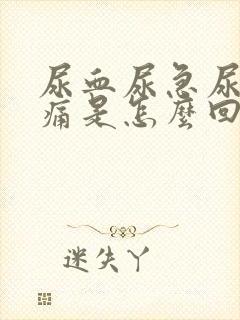 尿血尿急尿
痛是怎麼回
迷失丫